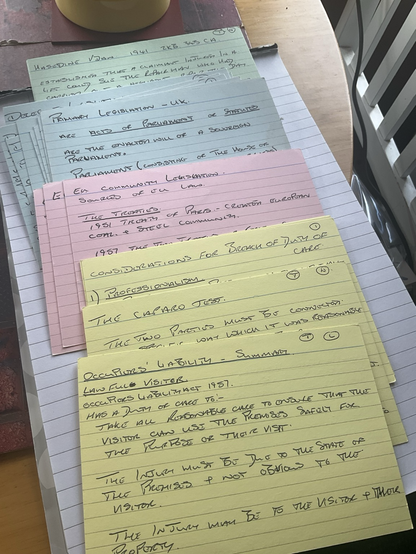 HASELDINE V DAW. 1941
ESTABLISHED THAT A CLAIMANT INJURED IN A
LIFT COULD SUE THE REPAIR MAN WHO HAD
PRIMARY LEGISLATION - UK.
ARE ACTS OF PARLIAMENT OR STATUTES
ARE THE ENACTED WILL OF A SOVEREIGN
PARLIAMENT.
PARLIAMENT (CONSISTING OF THE HOUSE OF
EU COMMUNITY LEGISLATION.
SOURCES OF EU LAW.
THE TREATIES
1951 TREATY OF PARIS - CREATED EUROPEAN
COAL & STEEL COMMUNITY.
1957 THE
1
CONSIDERATIONS FOR BREACH OF DUTY OF
CARE
1) PROFESSIONALISM
THE CAPARO TEST.
THE TWO PARTIES MUST BE CONNECTED
WAY WHICH IT WAS REASONABLY
OCCUPIERS' LIABILITY - SUMMARY
LAWFUL VISITOR.
OCCUPIERS LIABILITY ACT 1957.
HAS A DUTY OF CARE TO:-
TAKE ALL REASONABLE CARE TO ENSURE THAT THE
VISITOR CAN USE THE PREMISES SAFELY FOR
THE PURPOSE OF THEIR VISIT.
THE INJURY MUST BE DUE TO THE STATE OF
THE PREMISES & NOT OBVIOUS TO THE
VISITOR.
THE INJURY MUST BE TO THE VISITOR & THEIR
PROPERTY.